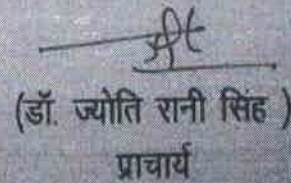 (डॉ. ज्योति रानी सिंह )
प्राचार्य